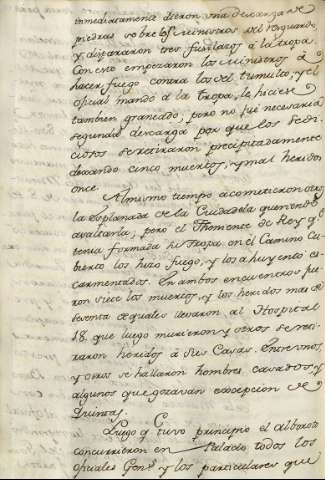 inmediatamente dieron una descarga de
piedras sobre los Ministros del resguardo,
y dispararon tres fusilazos á la tropa.
Con esto empezaron los Ministros á
hacer fuego contra los del tumulto, y el
oficial mandó á la tropa, le hiciese
tambien graneado, pero no fué necesaria
segunda descarga por que los sedi-
ciosos se retiraron precipitadamente
dexando cinco muertos, y mal heridos
once.
Al mismo tiempo acometieron otros
la Esplanada de la Ciudadela queriendo
asaltarla, pero el Theniente de Rey q.e
tenia formada su Tropa en el Camino Cu-
bierto los hizo fuego, y los ahuyentó es-
carmentados. En ambos encuentros fue-
ron siete los muertos, y los heridos mas de
de quales llevaron al Hospital
18. que luego murieron y otros se reti-
raron heridos á sus Casas. Entre unos,
y otros se hallaron hombres casados, y
algunos que gozavan excepcion de
Quintas.
Luego q.e tuvo principio el alboroto
concurrieron en Palacio todos los
oficiales Gen.s y los particulares que